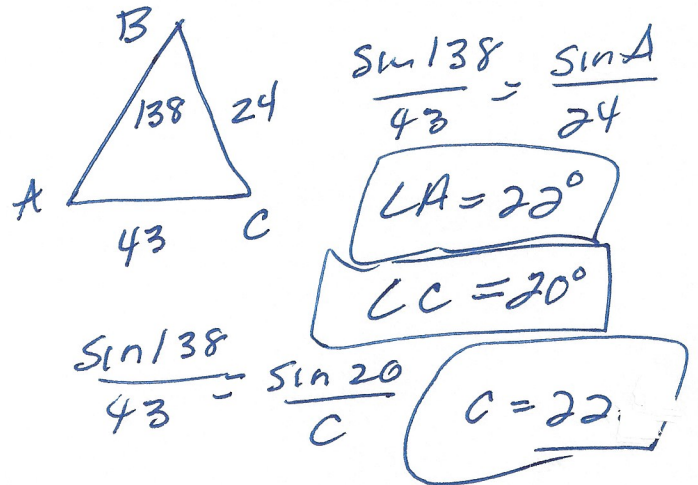 B
138
24
A
43
C
sin 138 / 43 = sin A / 24
∠A = 22°
∠C = 20°
sin 138 / 43 = sin 20 / C
C = 22.